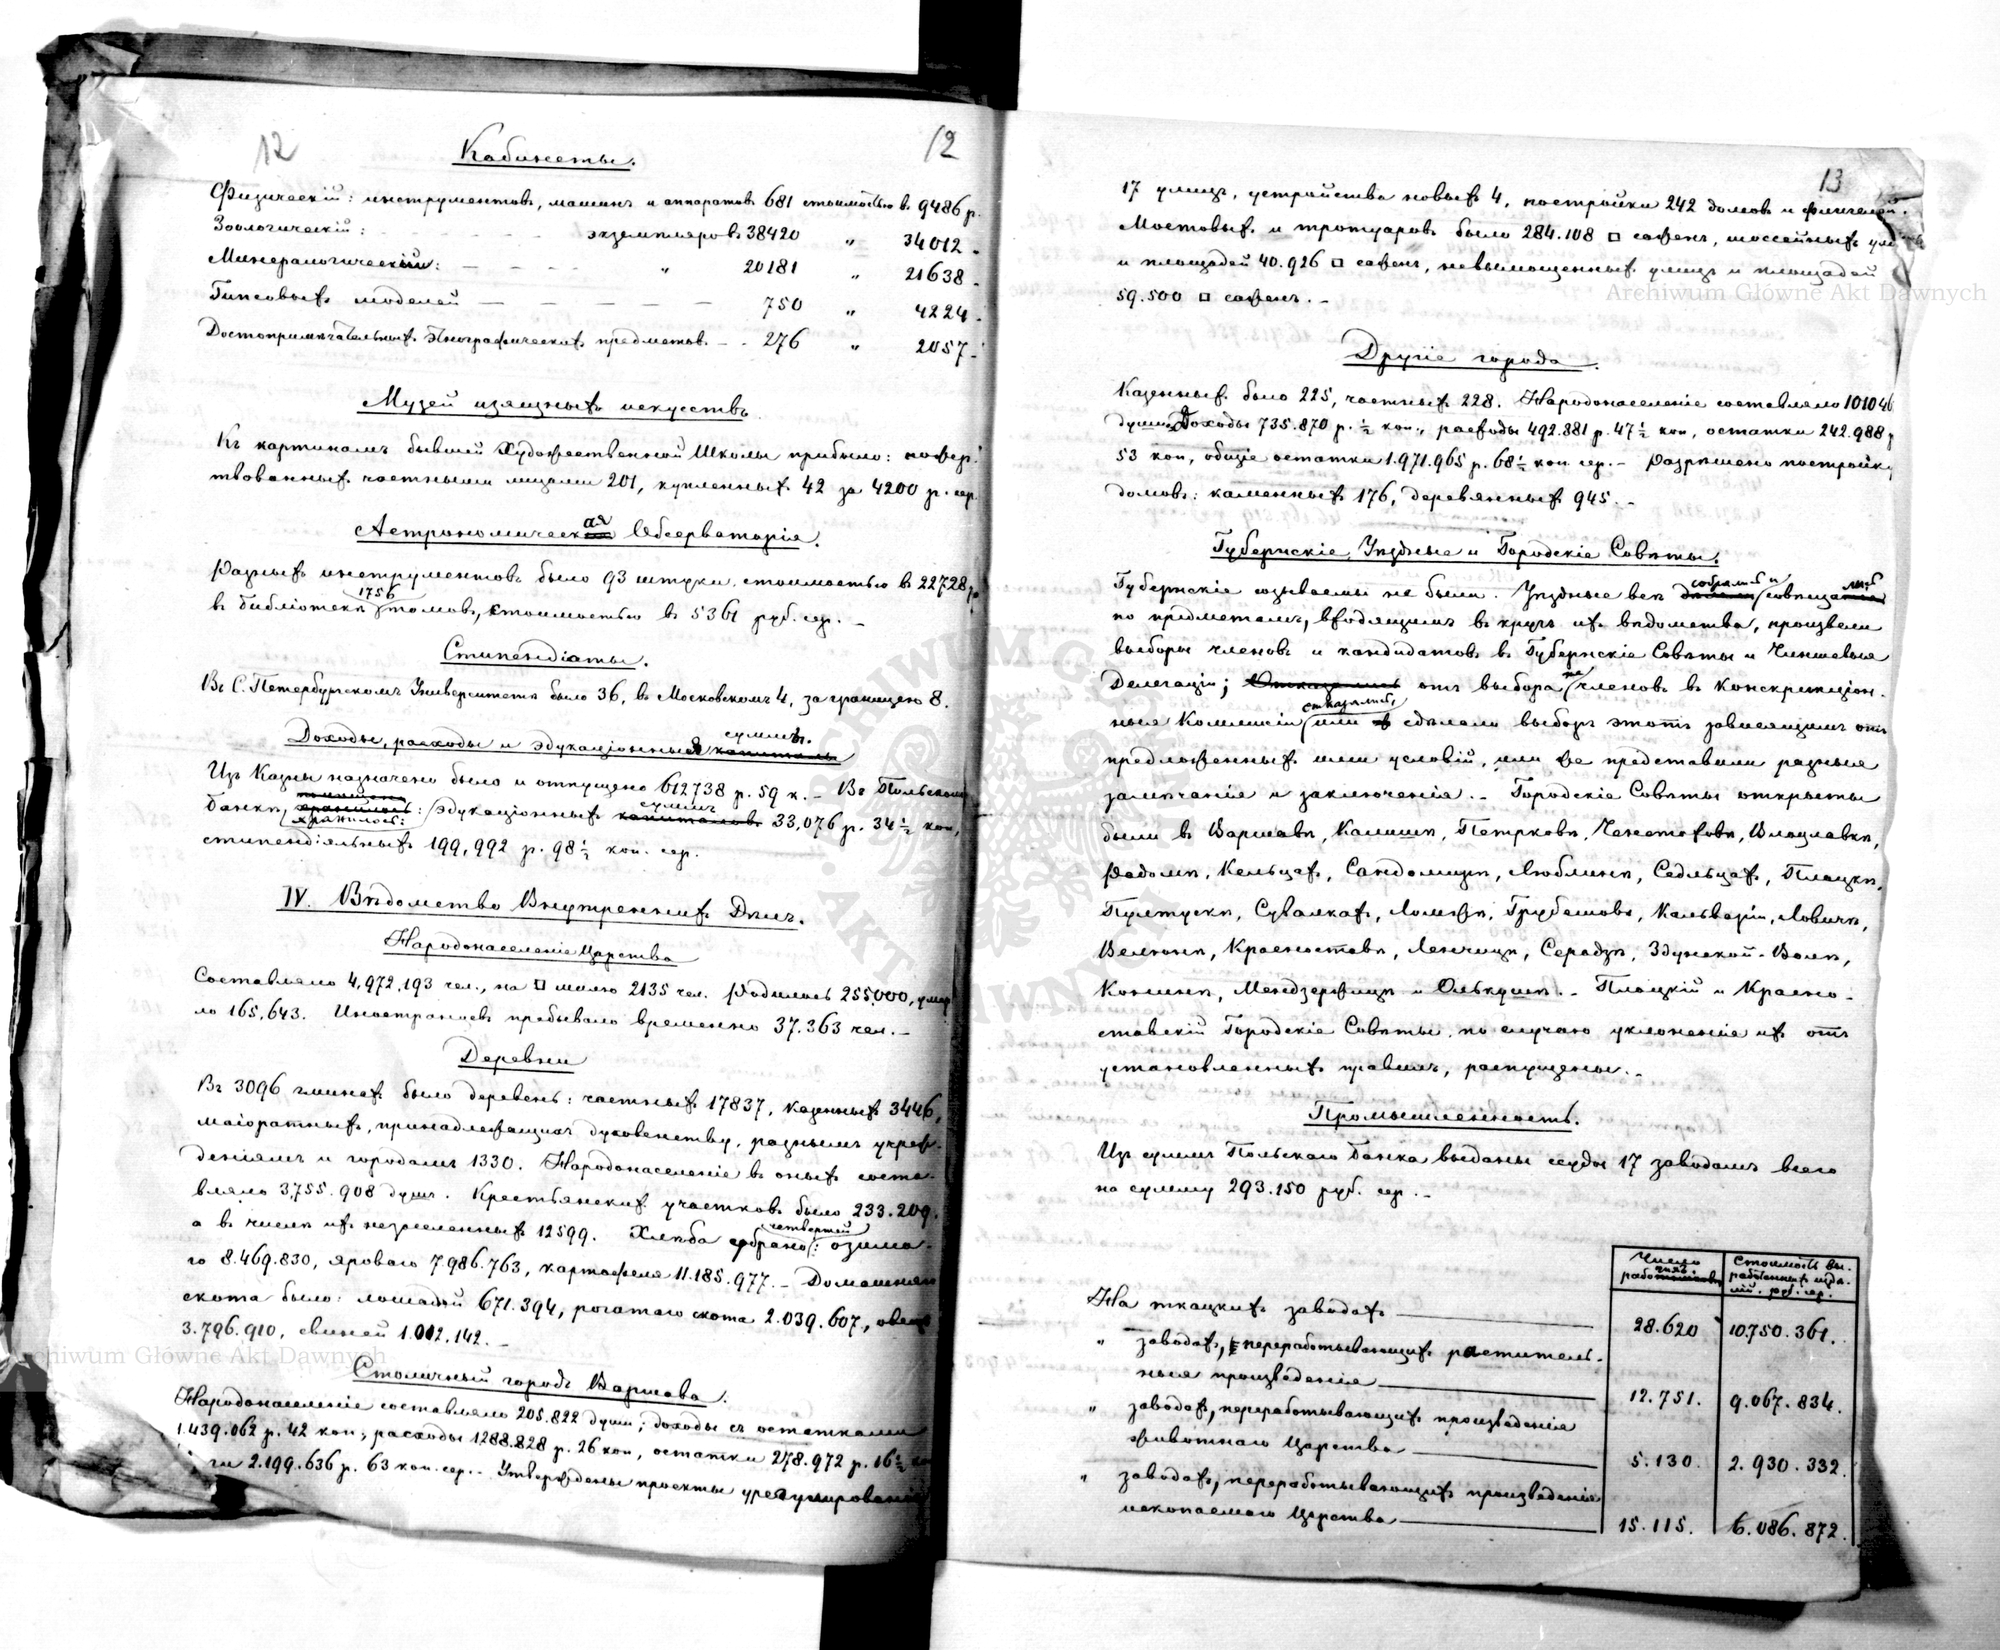 12
12
Кабинеты.
Физическій: инструментовъ, машинъ и аппаратовъ 681 стоимостью въ 9486 р.
Зоологическій: экземпляровъ 38420 „ 34012 -
Минералогическій: „ 20181 „ 21638 -
Гипсовыхъ моделей — — — — — 750 „ 4224 -
Достопримѣчательныхъ Этнографическихъ предметовъ - - 276 „ 2057 -
Музей изящныхъ искусствъ.
Къ картинамъ бывшей Художественной Школы прибыло: пожер-
твованныхъ частными лицами 201, купленныхъ 42 за 4200 р. сер.
Астрономическая Обсерваторія.
Разныхъ инструментовъ было 93 штуки, стоимостью въ 22728 р.
въ библіотекѣ 1756 томовъ, стоимостью въ 5361 руб. сер. -
Стипендіаты.
Въ С. Петербургскомъ Университетѣ было 36, въ Московскомъ 4, за границею 8.
Доходы, расходы и эдукаціонные капиталы суммъ.
Изъ Казны назначено было и отпущено 612738 р. 59 к. - Въ Польскомъ
банкѣ хранилось: эдукаціонныхъ капиталовъ суммъ 33,076 р. 34½ коп,
стипендіяльныхъ 199,992 р. 98½ коп. сер.
IV. Вѣдомство Внутреннихъ Дѣлъ.
Народонаселеніе Царства
Составляло 4,972,193 чел., на □ милю 2135 чел. Родилось 255,000, умер-
ло 165,643. Иностранцевъ пребывало временно 37.363 чел. -
Деревни
Въ 3096 гминахъ было деревень: частныхъ 17837, казенныхъ 3446,
маіоратныхъ, принадлежащихъ духовенству, разнымъ учреж-
деніямъ и городамъ 1330. Народонаселеніе въ оныхъ соста-
вляло 3,755.908 душъ. Крестьянскихъ участковъ было 233.209.
а въ числѣ ихъ незаселенныхъ 12599. Хлѣба собрано четвертей: озима-
го 8.469.830, яроваго 7.986.763, картофеля 11.185.977. - Домашняго
скота было: лошадей 671.394, рогатаго скота 2.039.607, овецъ
3.796.910, свиней 1.002.142. -
Столичный городъ Варшава.
Народонаселеніе составляло 205.822 души; доходы съ остатками
1.439.062 р. 42 коп., расходы 1288.828 р. 26 коп, остатки 278.972 р. 16½ коп
2.199.636 р. 63 коп. сер. - Утверждены проекты урегулированія
13
17 улицъ, устройства новыхъ 4, постройки 242 домовъ и флигелей.
Мостовыхъ и тротуаровъ было 284.108 □ сажень, шоссейныхъ улицъ
и площадей 40.926 □ сажень, невымощенныхъ улицъ и площадей
59.500 □ сажень. -
Другіе города.
Казенныхъ было 225, частныхъ 228. Народонаселеніе составляло 101046
душъ. Доходы 735.870 р. ½ коп., расходы 492.881 р. 47½ коп, остатки 242.988 р
53 коп, общіе остатки 1.971.965 р. 68½ коп. сер. - Разрѣшено постройку
домовъ: каменныхъ 176, деревянныхъ 945. -
Губернскіе, Уѣздные и Городскіе Совѣты.
Губернскіе созываемы не были. Уѣздные всѣ собрались и совѣщались
по предметамъ, входящимъ въ кругъ ихъ вѣдомства, произвели
выборы членовъ и кандидатовъ въ Губернскіе Совѣты и Чиншевыя
Делегаціи; Отказались отъ выбора же членовъ въ Конскрипціон-
ныя Коммисіи отказались, или сдѣлали выборъ этотъ зависящимъ отъ
предложенныхъ ими условій, или же представили разныя
замѣчанія и заключенія. - Городскіе Совѣты открыты
были въ Варшавѣ, Калишѣ, Петрковѣ, Ченстоховѣ, Влоцлавкѣ,
Радомѣ, Кельцахъ, Сандомирѣ, Люблинѣ, Седльцахъ, Плоцкѣ,
Пултускѣ, Сувалкахъ, Ломжѣ, Грубешовѣ, Кальваріи, Ловичѣ,
Велюнѣ, Красноставѣ, Ленчицѣ, Серадзѣ, Здунской-Волѣ,
Конинѣ, Мендзержицѣ и Олькушѣ. - Плоцкій и Красно-
ставскій Городскіе Совѣты, по случаю уклоненія ихъ отъ
установленныхъ правилъ, распущены. -
Промышленность.
Изъ суммъ Польскаго Банка выданы ссуды 17 заводамъ всего
на сумму 293.150 руб. сер. -
Число работниковъ
Стоимость вы-
работанныхъ издѣ-
лій. руб. сер.
На ткацкихъ заводахъ — 28.620 10.750.361.
„ заводахъ, переработывающихъ раститель-
ныя произведенія — 12.751. 9.067.834.
„ заводахъ, переработывающихъ произведенія
животнаго Царства — 5.130. 2.930.332.
„ заводахъ, переработывающихъ произведенія
ископаемаго Царства — 15.115. 6.086.872.
Archiwum Główne Akt Dawnych
Archiwum Główne Akt Dawnych